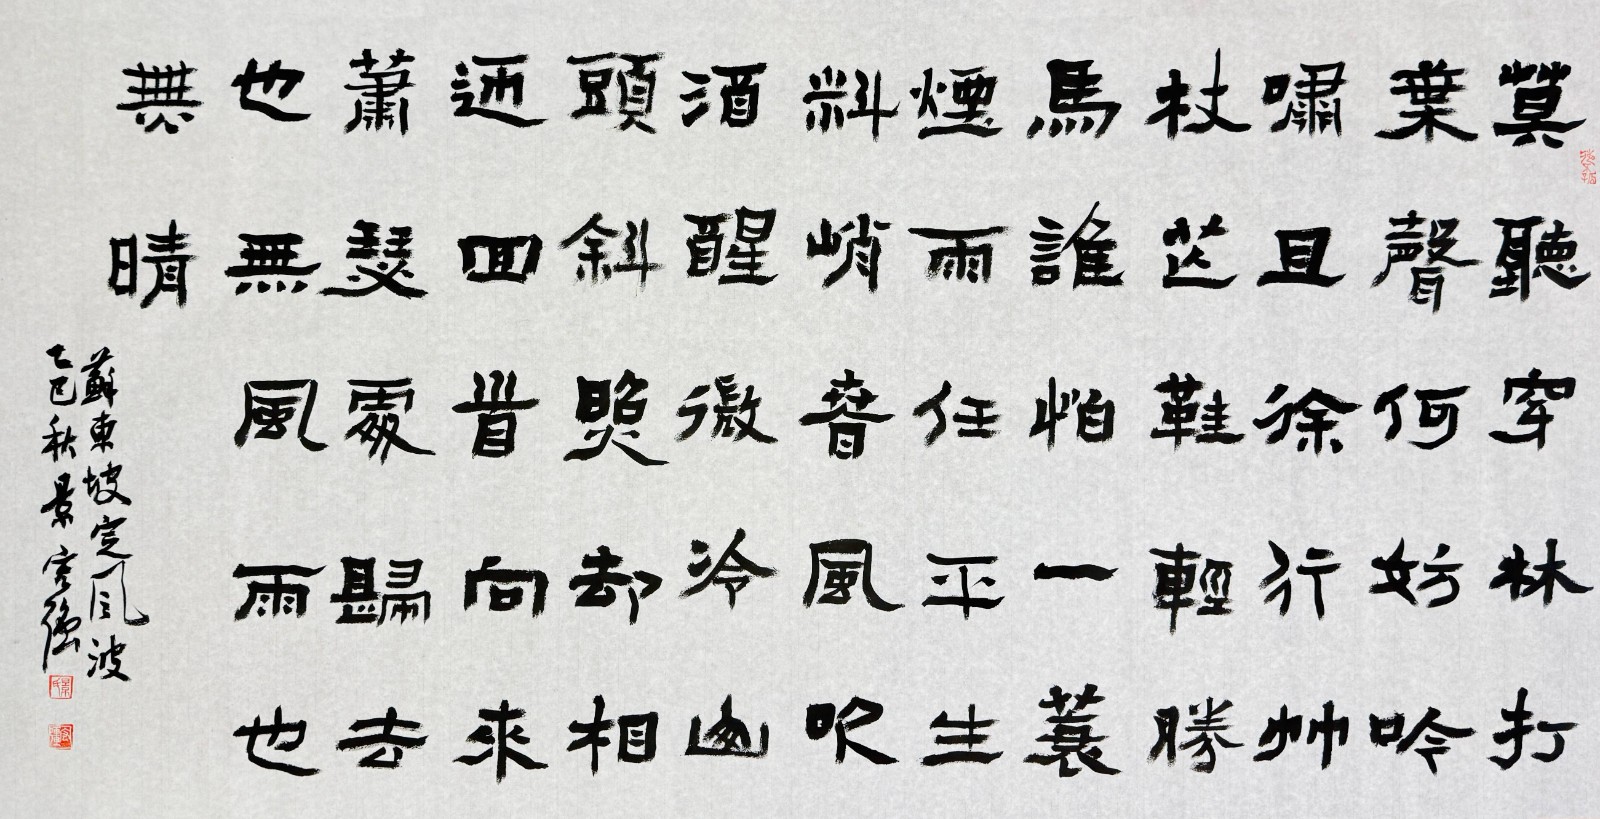 莫聽穿林打
葉聲何妨吟
嘯且徐行竹
杖芒鞋輕勝
馬誰怕一蓑
煙雨任平生
料峭春風吹
酒醒微冷山
頭斜照却相
迎回首向來
蕭瑟處歸去
也無風雨也
無晴
蘇東坡定風波
乙巳秋景強